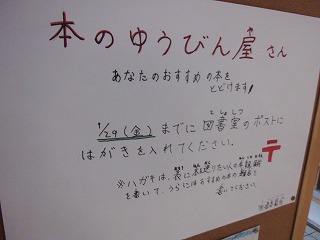 本のゆうびん屋さん
あなたのおすすめの本を
とどけます!
1/29(金)までに図書室のポストに
としょしつ
はがきを入れてください。
〒
※ハガキは、裏に送りたい人の
を書いて、うらにはおすすめの本の
書いてください。